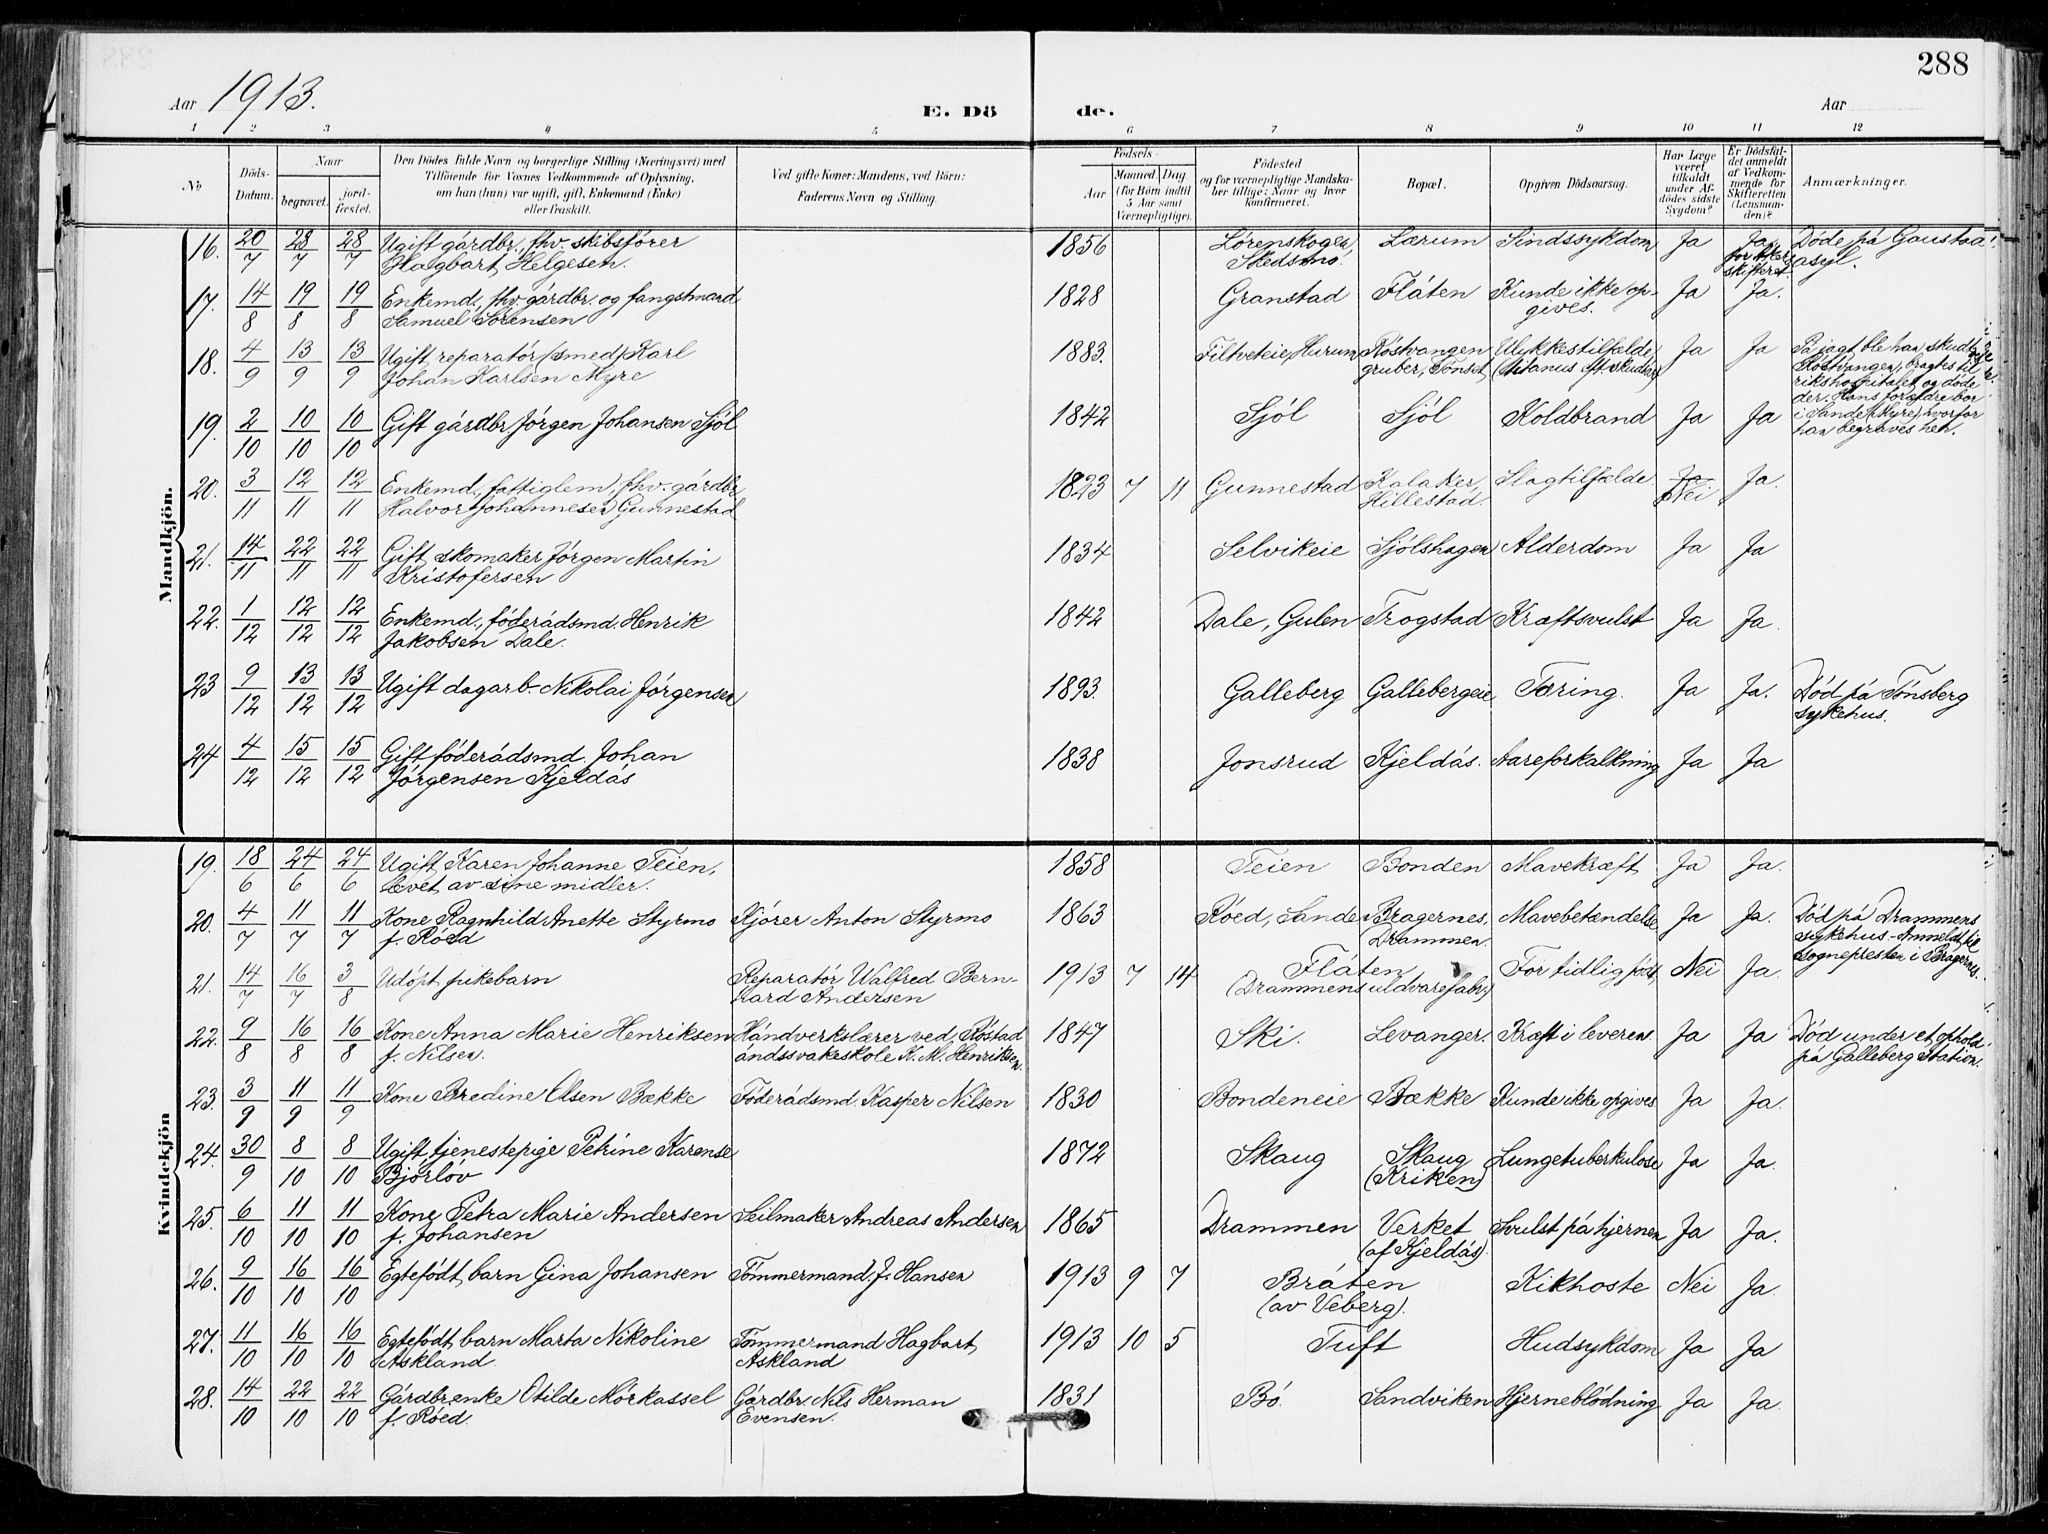 288
Aar 1913.
E. Dö de.
Aar
1 2 3 4 5 6 7 8 9 10 11 12
No
Döds-Datum.
Naar
begravet.
jordfæstet.
Den Dödes fulde Navn og borgerlige Stilling (Næringsvei) med
Tilföiende for Voxnes Vedkommende af Oplysning,
om han (hun) var ugift, gift, Enkemand (Enke)
eller fraskilt.
Ved gifte Koner: Mandens, ved Börn:
Faderens Navn og Stilling.
Födsels-
Aar
Maaned Dag
(for Börn indtil
5 Aar samt
Værnepligtige).
Födested
og for værnepligtige Mandska-
ber tillige: Naar og hvor
konfirmeret.
Bopæl.
Opgiven Dödsaarsag.
Har Læge
været
tilkaldt
under Af-
dödes sidste
Sygdom?
Er Dödsfal-
det anmeldt
af Vedkom-
mende for
Skifteretten
(Lensman-
den)?
Anmærkninger.
Mandkjön.
16. 20/7 28/7 28/7 Ugift gårdbr., fhv. skibsfører 1856 Lørenskogen, Lærum Sindssykdom Ja Ja, Døde på Gaustad
Hagbart Helgesen. Skedsmo. for Aker skifteret. asyl.
17. 14/8 19/8 19/8 Enkemd., fhv. gårdbr. og fangstmand 1828 Granstad Flåten Kunde ikke op- Ja Ja.
Samuel Sørensen gives.
18. 4/9 13/9 13/9 Ugift reparatør (smed) Karl 1883. Filtveteie, Hurum Røstvangen Ulykkestilfælde Ja Ja På jagt ble han skudt
Johan Karlsen Myre gruber, Tønset (titanus eft. skudsår) Røstvangen, bragtes til
rikshospitalet og døde
der. Hans forældre bor
i Sande (Myre), hvorfor
han begraves her.
19. 2/10 10/10 10/10 Gift gårdbr. Jørgen Johansen Sjøl 1842 Sjøl Sjøl Koldbrand Ja Ja
20. 3/11 12/11 12/11 Enkemd., fattiglem, fhv. gårdbr. 1823 7 11 Gunnestad Kalaker, Slagtilfælde Ja Nei Ja.
Halvor Johannesen Gunnestad Hillestad.
21. 14/11 22/11 22/11 Gift skomaker Jørgen Martin 1834 Selvikeie Sjølshagen Alderdom Ja Ja
Kristofersen
22. 1/12 12/12 12/12 Enkemd., føderådsmd. Henrik 1842 Dale, Gulen Trogstad Kræftsvulst Ja Ja
Jakobsen Dale.
23 9/12 13/12 13/12 Ugift dagarb. Nikolai Jørgensen 1893. Galleberg Gallebergeie Tæring. Ja Ja. Død på Tønsberg
sykehus.
24 4/12 15/12 15/12 Gift føderådsmd. Johan 1838 Jonsrud Kjeldås. Aareforkalkning Ja Ja
Jørgensen Kjeldås
Kvindekjön
19. 18/6 24/6 24/6 Ugift Karen Johanne Teien, 1858 Teien Bonden Mavekræft Ja Ja.
levet av sine midler.
20. 4/7 11/7 11/7 Kone Ragnhild Anette Styrmo Kjører Anton Styrmo 1863 Røed, Sande Bragernes, Mavebetændelse Ja Ja. Død på Drammens
f. Røed Drammen. sykehus. Anmeldt til
sognepresten i Bragernes.
21. 14/7 16/7 3/8 Udøpt pikebarn Reparatør Walfred Bern- 1913 7 14 Flåten For tidlig født Nei Ja.
hard Andersen (Drammens uldvarefabr.)
22. 9/8 16/8 16/8 Kone Anna Marie Henriksen Håndverkslærer ved Røstad 1847 Ski. Levanger. Kræft i leveren. Ja Ja Død under et ophold
f. Nilsen. åndssvakeskole K. M. Henriksen. på Galleberg Station.
23. 3/9 11/9 11/9 Kone Bredine Olsen Bække Føderådsmd. Kasper Nilsen 1830 Bondeneie Bække Kunde ikke opgives Ja Ja.
24. 30/9 8/10 8/10 Ugift tjenestepige Petrine Karense 1872 Skaug Skaug Lungetuberkulose Ja Ja.
Bjørløv (Kriken)
25. 6/10 11/10 11/10 Kone Petra Marie Andersen Seilmaker Andreas Andersen 1865 Drammen Verket Svulst på hjernen Ja Ja.
f. Johansen (af Kjeldås).
26. 9/10 16/10 16/10 Egtefødt barn Gina Johansen Tømmermand J. Hansen 1913 9 7 Bråten Kikhoste Nei Ja.
(av Veberg).
27. 11/10 16/10 16/10 Egtefødt barn Marta Nikoline Tømmermand Hagbart 1913 10 5 Tuft Hudsykdom Ja Ja
Askland Askland
28. 14/10 22/10 22/10 Gårdbr.enke Otilde Mørkassel Gårdbr. Nils Herman 1831 Bø. Sandviken Hjerneblødning Ja Ja.
f. Røed. Evensen.